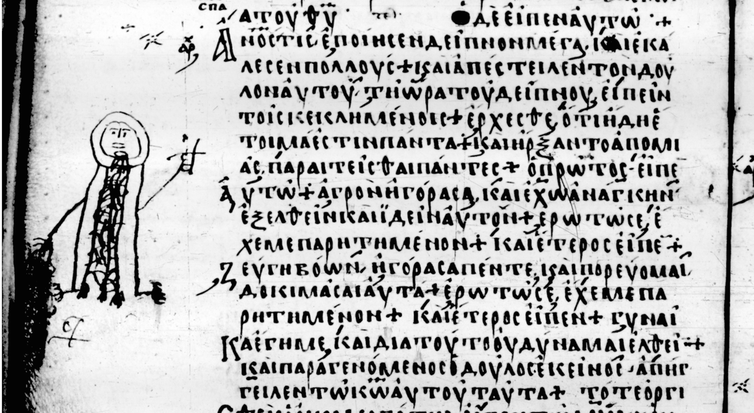 ΑΤΟΥΘΥ ΟΔΕΕΙΠΕΝΑΥΤΩ +
ΑΝΟϹΤΙϹΕΠΟΙΗϹΕΝΔΕΙΠΝΟΝΜΕΓΑ, ΚΑΙΕΚΑ
ΛΕϹΕΝΠΟΛΛΟΥϹ+ΚΑΙΑΠΕϹΤΕΙΛΕΝΤΟΝΔΟΥ
ΛΟΝΑΥΤΟΥΤΗΩΡΑΤΟΥΔΕΙΠΝΟΥ, ΕΙΠΕΙΝ
ΤΟΙϹΚΕΚΛΗΜΕΝΟΙϹ+ΕΡΧΕϹΘΕ, ΟΤΙΗΔΗΕ
ΤΟΙΜΑΕϹΤΙΝΠΑΝΤΑ+ΚΑΙΗΡΞΑΝΤΟΑΠΟΜΙ
ΑϹΠΑΡΑΙΤΕΙϹΘΑΙΠΑΝΤΕϹ+ΟΠΡΩΤΟϹΕΙΠΕ
ΑΥΤΩ+ΑΓΡΟΝΗΓΟΡΑϹΑ, ΚΑΙΕΧΩΑΝΑΓΚΗΝ
ΕΞΕΛΘΕΙΝΚΑΙΪΔΕΙΝΑΥΤΟΝ+ΕΡΩΤΩϹΕ, Ε
ΧΕΜΕΠΑΡΗΤΗΜΕΝΟΝ+ΚΑΙΕΤΕΡΟϹΕΙΠΕ+
ΖΕΥΓΗΒΟΩΝΗΓΟΡΑϹΑΠΕΝΤΕ, ΚΑΙΠΟΡΕΥΟΜΑΙ
ΔΟΚΙΜΑϹΑΙΑΥΤΑ+ΕΡΩΤΩϹΕ, ΕΧΕΜΕΠΑ
ΡΗΤΗΜΕΝΟΝ+ΚΑΙΕΤΕΡΟϹΕΙΠΕΝ+ΓΥΝΑΙ
ΚΑΕΓΗΜΕ, ΚΑΙΔΙΑΤΟΥΤΟΟΥΔΥΝΑΜΑΙΕΛΘΕΙ+
ΚΑΙΠΑΡΑΓΕΝΟΜΕΝΟϹΟΔΟΥΛΟϹΕΚΕΙΝΟϹ ΑΠΗΓ
ΓΕΙΛΕΝΤΩΚΩΑΥΤΟΥΤΑΥΤΑ+ ΤΟΤΕΟΡΓΙ